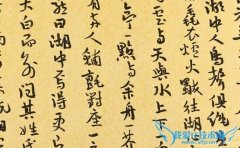 湖中人鳥聲俱
毳衣爐火獨往湖
雲與天與水上
亭一點與余舟
有兩人鋪氈對坐一
曰湖中焉得更
大白而別問其姓